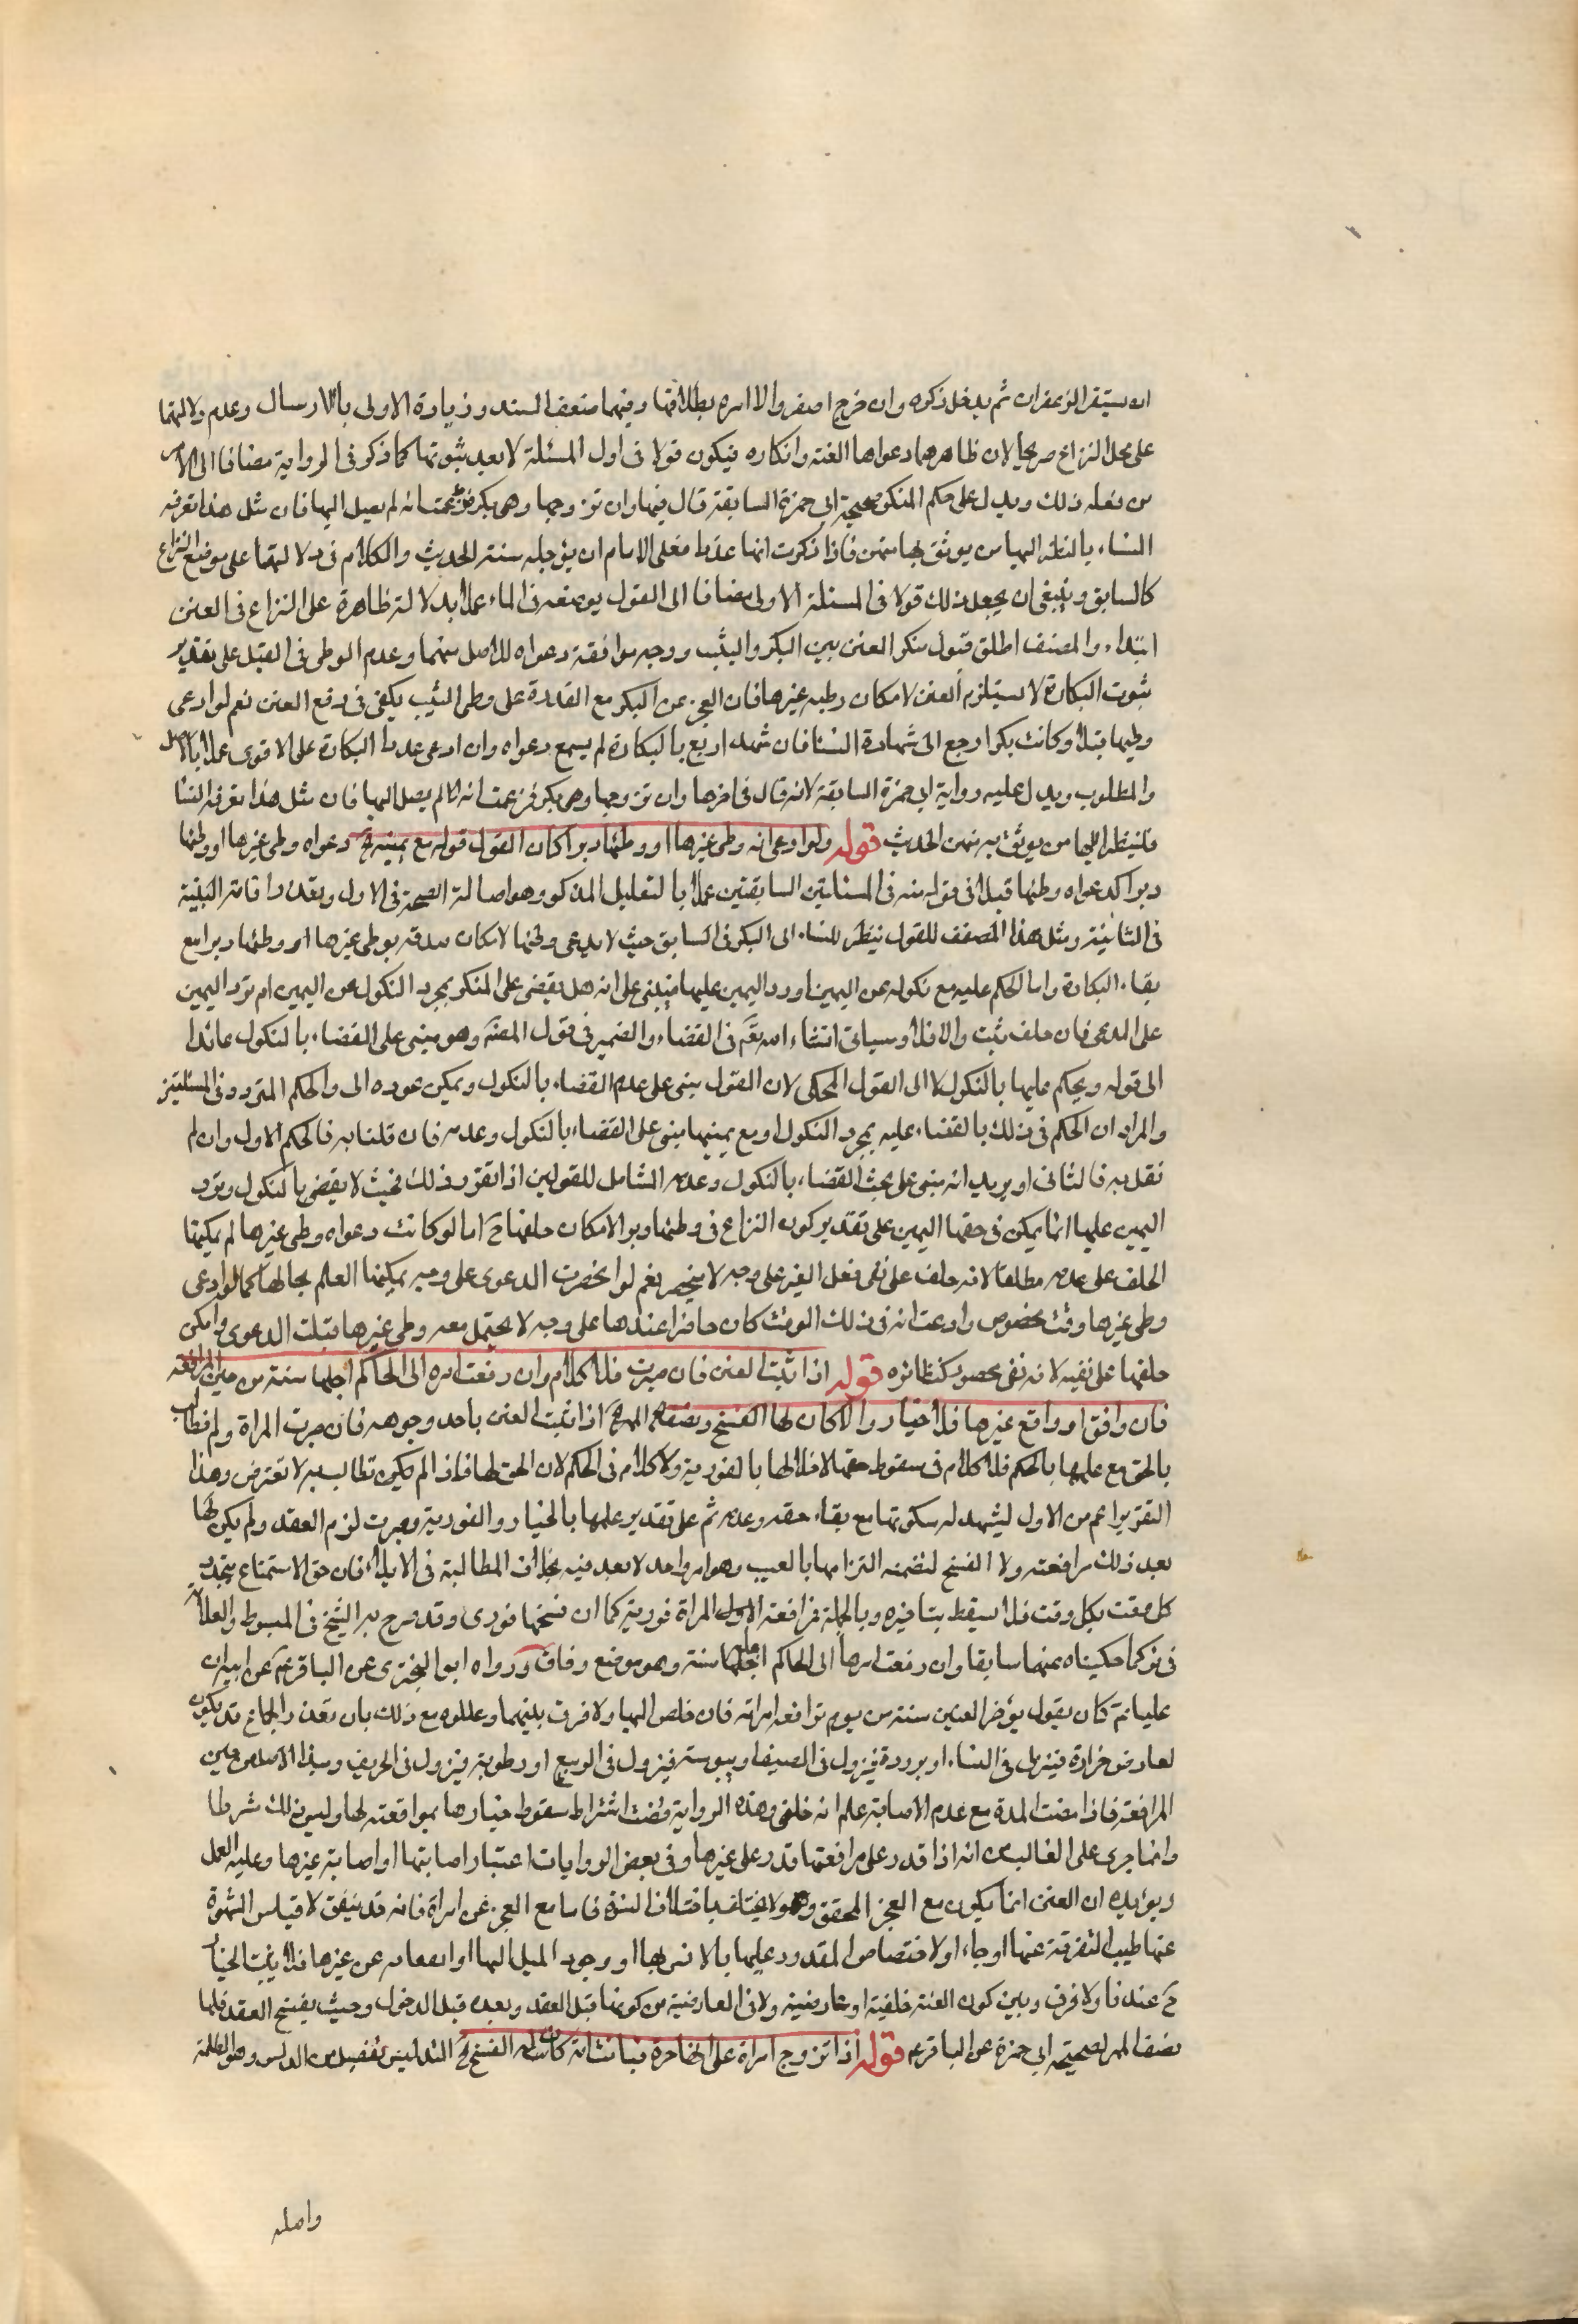 ان يستقر الزعفران ثم يدخل ذكره وان خرج اصفر والا امره بطلاقها وفيهما ضعف السند وزيادة الاولى بالارسال وعدم دلالتهما
على محل النزاع صريحا لان ظاهرهما دعواها العنة وانكاره فيكون قولا في اول المسئلة لا بعد ثبوتها كما ذكر في الرواية مضافا الى الامر
من فعله ذلك ويدل على حكم المنكر صحيحة ابي حمزة السابقة قال فيها وان تزوجها وهي بكر فزعمت انه لم يصل اليها فان مثل هذا تعرفه
النساء بالنظر اليها من يوثق بها منهن فاذا ذكرت انها عذراء فعلى الامام ان يؤجله سنة الحديث والكلام في دلالتها على موضع النزاع
كالسابق وينبغي ان يجعل ذلك قولا في المسئلة الاولى مضافا الى القول بوضعه في الماء عملا بدلالة ظاهرة على النزاع في العنن
ابتداء والمصنف اطلق قبول منكر العنن بين البكر والثيب ووجه موافقة دعواه للاصل منهما وعدم الوطى في القبل على تقدير
ثبوت البكارة لا يستلزم العنن لامكان وطيه غيرها فان العجز عن البكر مع القدرة على وطى الثيب يكفي في دفع العنن نعم لو ادعى
وطيها قبلا وكانت بكرا رجع الى شهادة النسا فان شهد اربع بالبكارة لم يسمع دعواه وان ادعى عود البكارة على الاقوى عملا بالاصل
والمطلوب ويدل عليه رواية ابي حمزة السابقة لانه قال في اخرها وان تزوجها وهي بكر فزعمت انه لم يصل اليها فان مثل هذا تعرفه النسا
فلينظر اليها من يوثق به منهن الحديث قوله ولو ادعى انه وطى غيرها او وطئها دبرا كان القول قوله مع يمينه دعواه وطى غيرها او وطئها
دبرا كدعواه وطئها قبلا في قوله منه في المسئلتين السابقتين عملا بالتعليل المذكور وهو اصالة الصحة في الاول وتعذر اقامة البينة
في الثانية ومثل هذا المضعف للقول بنظر النساء الى البكر في السابق حيث لا يدعى وطئها لامكان صدقه بوطى غيرها او وطئها دبرا مع
بقاء البكارة واما الحكم عليه مع نكوله عن اليمين او رد اليمين عليها فيبنى على انه هل يقضى على المنكر بمجرد النكول عن اليمين ام ترد اليمين
على المدعى فان حلف ثبت والا فلا وسياتي انشاء الله تع في القضاء والضمير في قول المص وهو مبنى على القضاء بالنكول عائد
الى قوله ويحكم عليها بالنكول لا الى القول المحكى لان القول مبنى على عدم القضاء بالنكول ويمكن عوده الى الحكم المتردد في المسئلتين
والمراد ان الحكم في ذلك بالقضاء عليه بمجرد النكول او مع يمينها مبنى على القضاء بالنكول وعدمه فان قلنا به فالحكم الاول وان لم
نقل به فالثاني او يريد انه مبنى على بحث القضاء بالنكول وعدمه الشامل للقولين اذا تقرر ذلك فحيث لا يقضى بالنكول وترد
اليمين عليها انما يمكن في حقها اليمين على تقدير كون النزاع في وطئها دبرا لامكان حلفها ح اما لو كانت دعواه وطى غيرها لم يمكنها
الحلف على عدمه مطلقا لانه حلف على نفى فعل الغير على وجه لا ينحصر نعم لو انحصرت الدعوى على وجه يمكنها العلم بحالها كما لو ادعى
وطى غيرها وقت مخصوص وادعت انه في ذلك الوقت كان حاضرا عندها على وجه لا يحتمل معه وطى غيرها قبلت الدعوى وامكن
حلفها على نفيه لانه نفى محصور كنظائره قوله اذا ثبت العنن فان صبرت فلا كلام وان رفعت امره الى الحاكم اجلها سنة من حين المرافعة
فان واقع او واقع غيرها فلا خيار والا كان لها الفسخ ونصف المهر اذا ثبت العنن باحد وجوهه فان صبرت المراة ولم تطالب
بالحق مع علمها بالحكم فلا كلام في سقوط حقها لاخلالها بالفورية ولا كلام في الحكم لان الحق لها فاذا لم يكن تطالب به لا تعترض وهذا
التقرير اعم من الاول ليشهد له سكوتها مع بقاء حقه وعدمه ثم على تقدير علمها بالخيار والفورية وصبرت لزم العقد ولم يكن لها
بعد ذلك مرافعته ولا الفسخ لتضمنه التزامها بالعيب وهو امر واحد لا بعد فيه بخلاف المطالبة في الايلاء فان حق الاستمتاع يتجدد
كل وقت بكل وقت فلا يسقط بتاخيره وبالجملة مرافعة المراة فورية كما ان فسخها فورى وقد صرح به الشيخ في المبسوط والعلامة
في كما حكيناه عنهما سابقا وان رفعت امرها الى الحاكم اجلها سنة وهو موضع وفاق ورواه ابو البخترى عن الباقر ع عن ابيه ان
عليا ع كان يقول يؤخر العنين سنة من يوم ترافعه امراته فان خلص اليها والا فرق بينهما وعللوه مع ذلك بان تعذر الجماع قد يكون
لعارض حرارة فيزول في الشتاء او برودة فيزول في الصيف او يبوسة فيزول في الربيع او رطوبة فيزول في الخريف ومبدا الاجل من حين
المرافعة فاذا مضت المدة مع عدم الاصابة علم انه خلقى وهذه الرواية اشتراط سقوط خيارها بمواقعته لها وليس ذلك شرطا
وانما جرى على الغالب من انه اذا قدر على مرافعتها قدر على غيرها وفي بعض الروايات اعتبار اصابتها او اصابة غيرها وعليه العمل
ويؤيده ان العنن انما يكون مع العجز المحقق وهو لا يختلف باختلاف النسوة فاما مع العجز عن امراة فانه قد يتفق لاقياس الشهوة
عنها طيب التفرقة عنها او حياء او لاختصاص المقدور عليها بالانس بها او وجود الميل اليها او عن غيرها فلا يثبت الخيار
ح عندنا ولا فرق وبين كون العنة خلقية او عارضية ولا في العارضية من كونها قبل العقد وبعده قبل الدخول وحيث يفسخ العقد فلها
نصف المهر لصحيحة ابي حمزة عن الباقر ع قوله اذا تزوج امراة على انها حرة فبانت امة كان له الفسخ التدليس تفعيل من الدلس وهو الظلمة
واصله